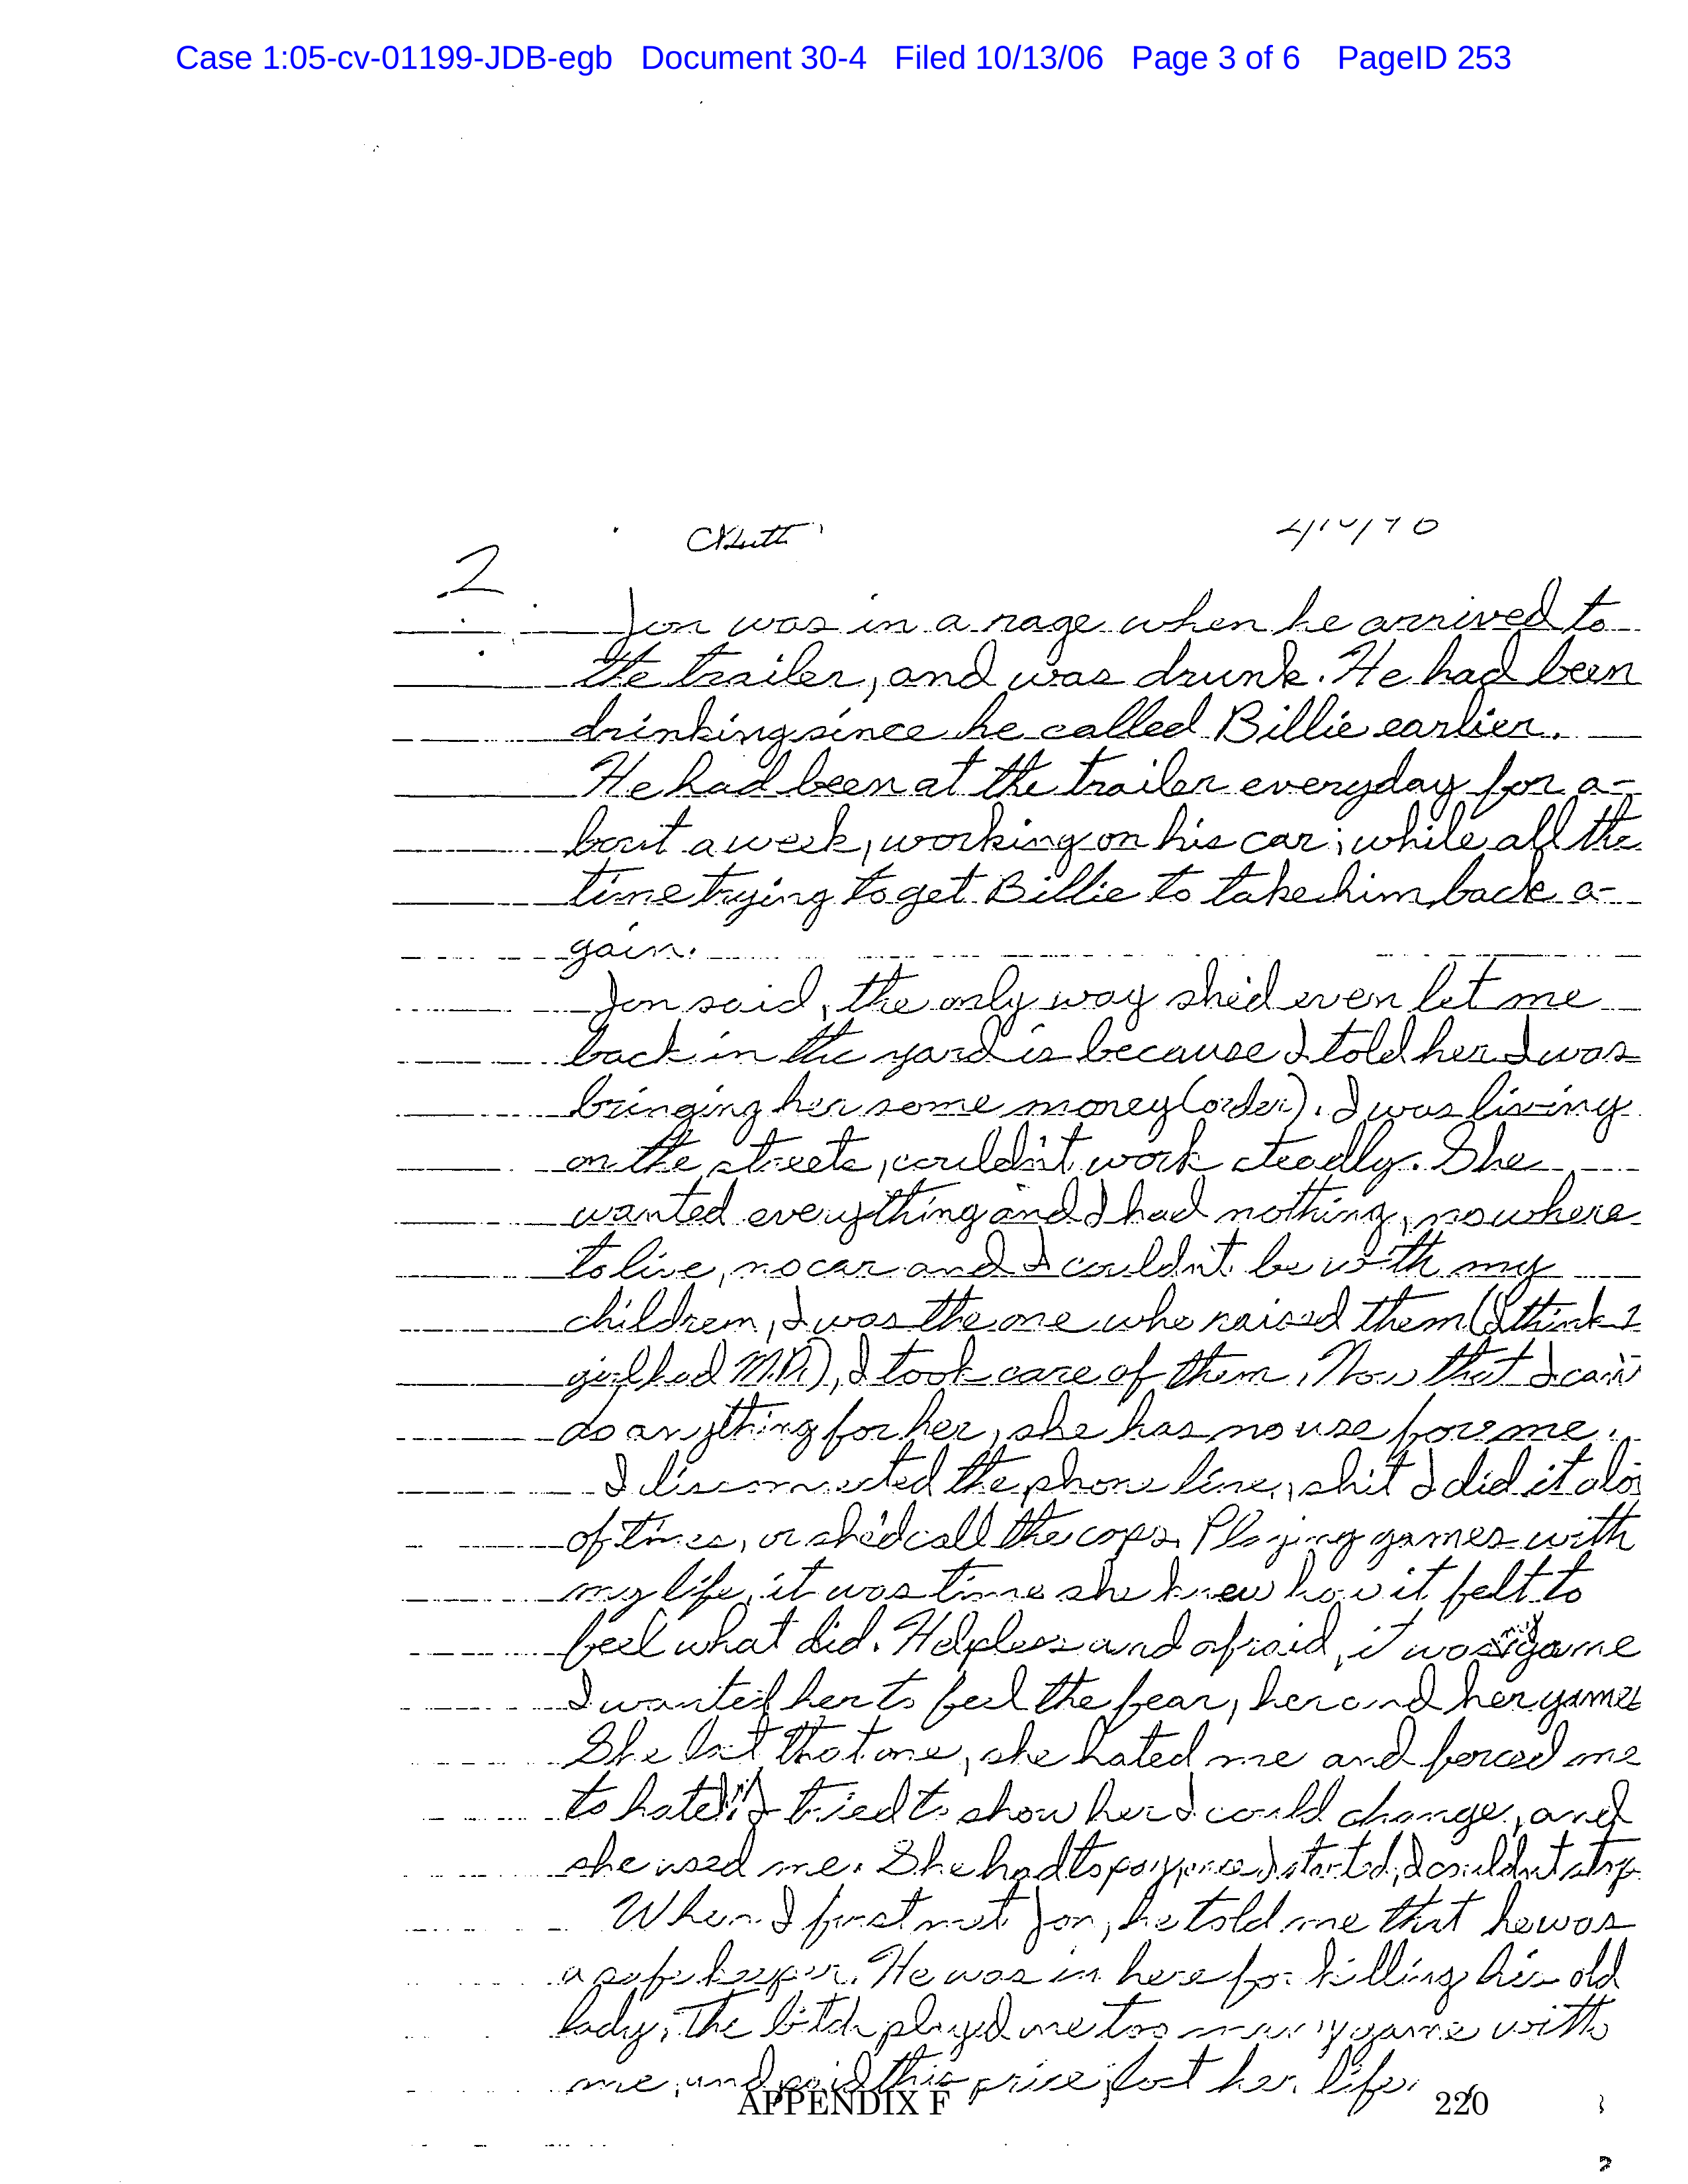 Case 1:05-cv-01199-JDB-egb Document 30-4 Filed 10/13/06 Page 3 of 6 PageID 253
2
Jon was in a rage when he arrived to
the trailer, and was drunk. He had been
drinking since he called Billie earlier.
He had been at the trailer everyday for a-
bout a week, working on his car; while all the
time trying to get Billie to take him back a-
gain.
Jon said, the only way she'd even let me
back in the yard is because I told her I was
bringing her some money (order). I was living
on the streets, couldn't work steadly. She
wanted everything and I had nothing, nowhere
to live, no car and I couldn't be with my
children, I was the one who raised them (I think 1
girl had M.D.), I took care of them. Now that I can't
do anything for her, she has no use for me.
I disconnected the phone line, shit I did it alot
of times, or she'd call the cops. Playing games with
my life, it was time she knew how it felt to
feel what did. Helpless and afraid, it was my game
I wanted her to feel the fear, her and her games
She lost that one, she hated me and forced me
to hate. I tried to show her I could change, and
she used me. She had to pay, once I started, I couldn't stop
When I first met Jon, he told me that he was
a safe keeper. He was in here for killing his old
lady, The bitch played me too many game with
me, and paid this price, lost her life.
APPENDIX F 220